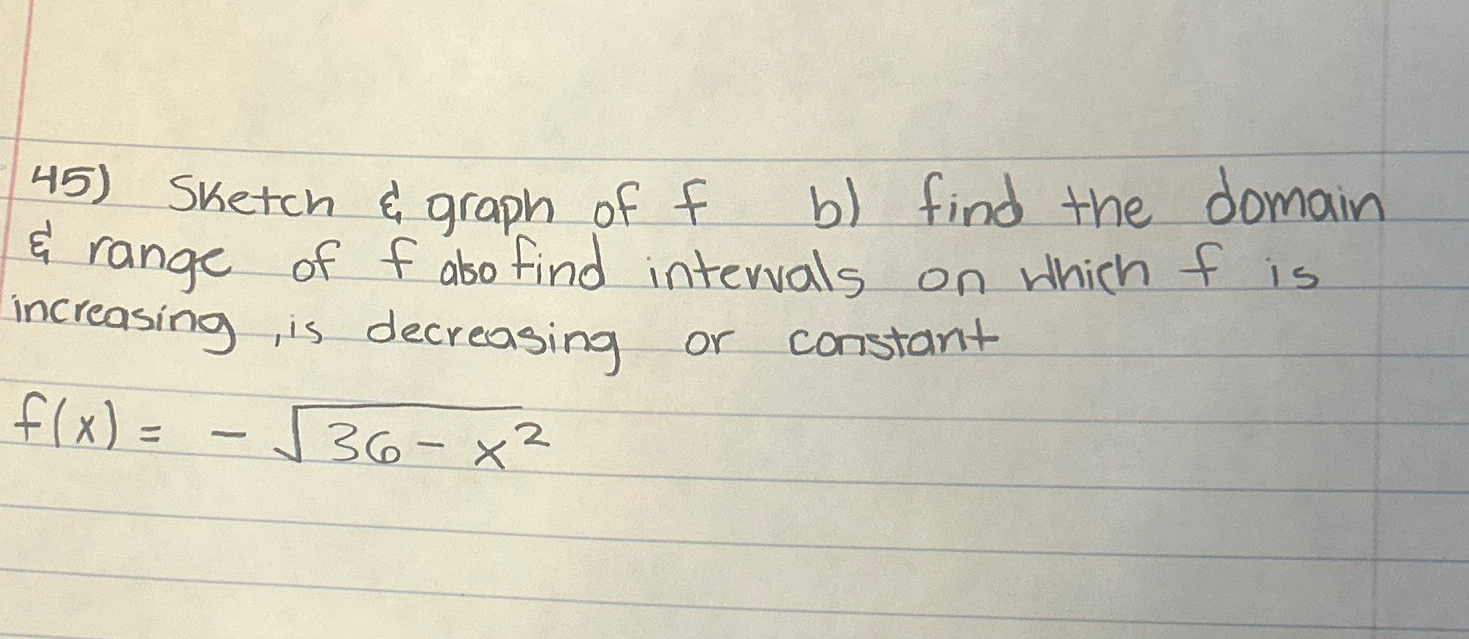 45) Sketch & graph of f b) find the domain
& range of f also find intervals on which f is
increasing, is decreasing or constant
f(x) = - √36 - x²